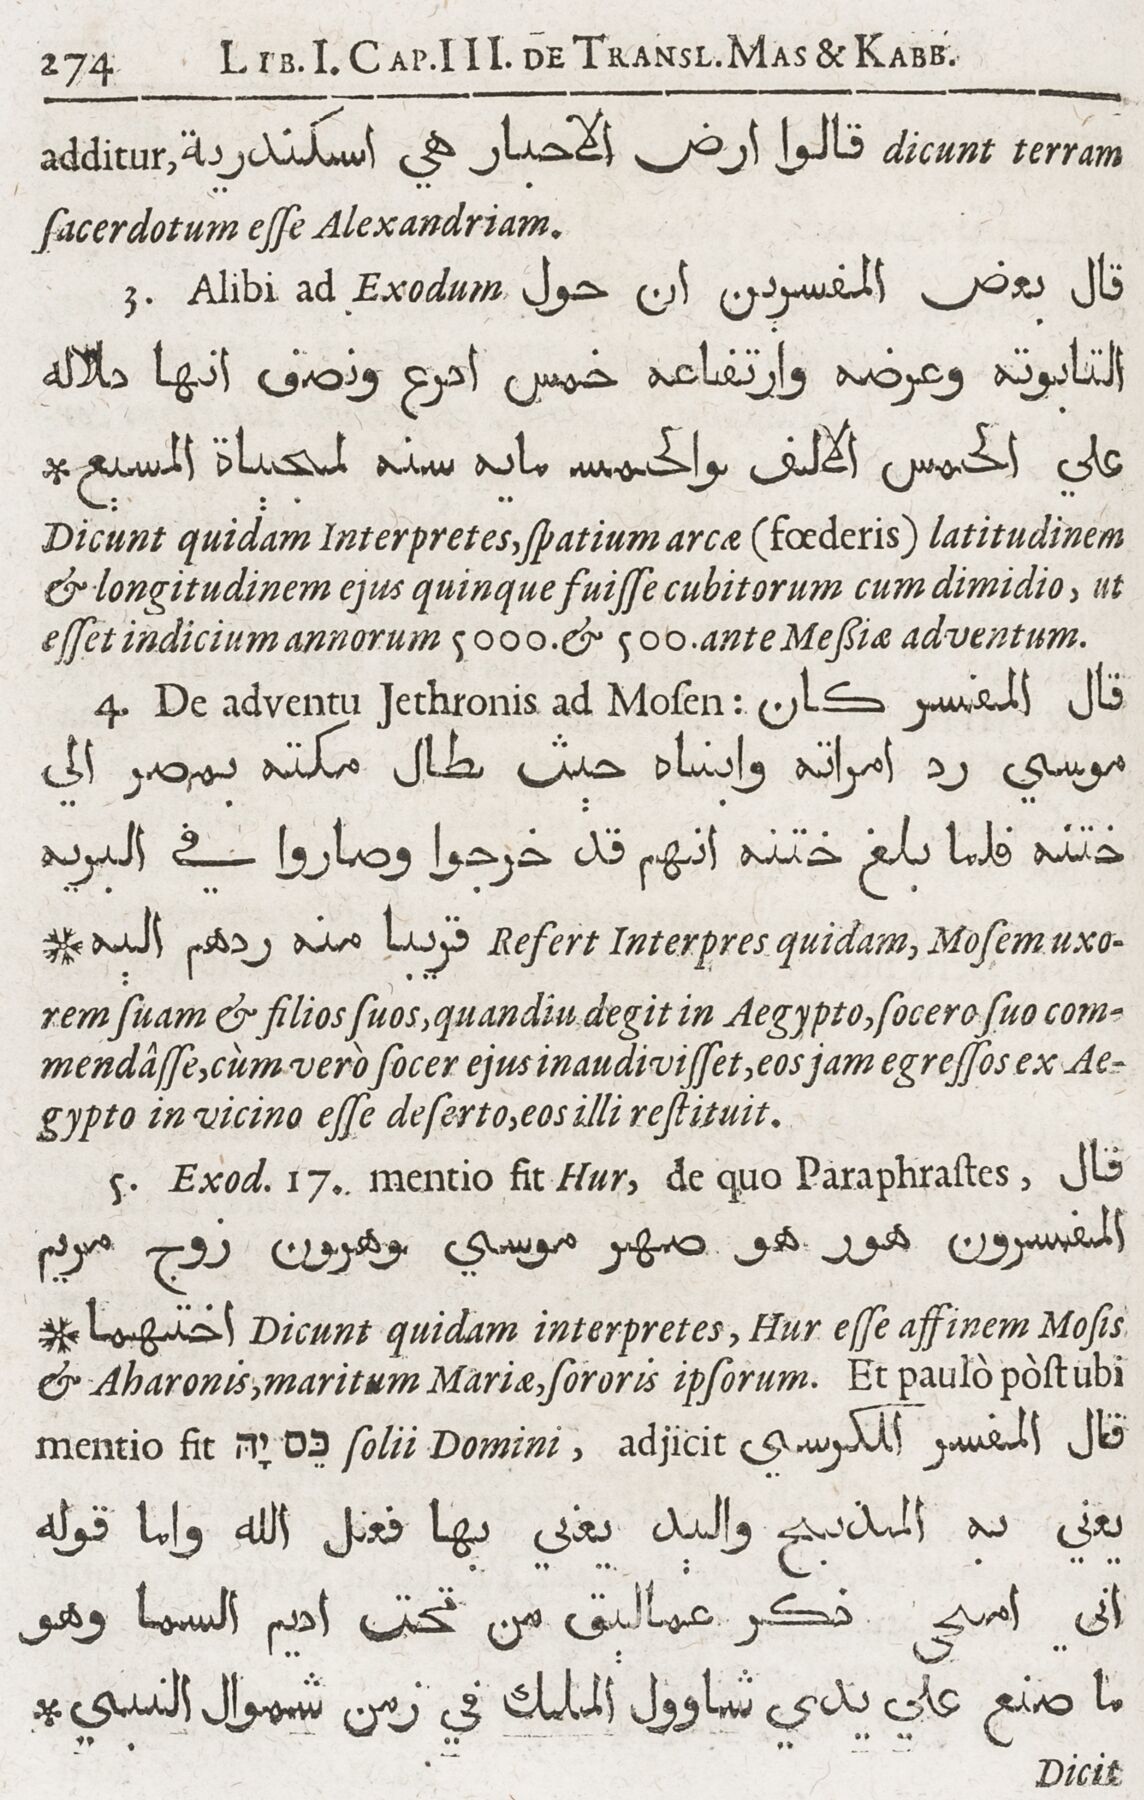 274 LIB. I. CAP. III. DE TRANSL. MAS & KABB.
additur, قالوا ارض الاحبار هي اسكندرية dicunt terram
ſacerdotum eſſe Alexandriam.
3. Alibi ad Exodum قال بعض المفسرين ان حول
التابوته وعرضه وارتفاعه خمس ادرع ونصف انها دلاله
علي الخمس الالف والخمسه مايه سنه لمجياة المسيع *
Dicunt quidam Interpretes, ſpatium arcæ (fœderis) latitudinem
& longitudinem ejus quinque fuiſſe cubitorum cum dimidio, ut
eſſet indicium annorum 5000. & 500. ante Meßiæ adventum.
4. De adventu Jethronis ad Moſen: قال المفسر كان
موسي رد امراته وابناه حيث طال مكته بمصر الي
ختنه فلما بلغ ختنه انهم قد خرجوا وصاروا في البريه
قريبا منه ردهم اليه * Refert Interpres quidam, Moſem uxo-
rem ſuam & filios ſuos, quandiu degit in Aegypto, ſocero ſuo com-
mendâſſe, cùm verò ſocer ejus inaudiviſſet, eos jam egreſſos ex Ae-
gypto in vicino eſſe deſerto, eos illi reſtituit.
5. Exod. 17. mentio fit Hur, de quo Paraphraſtes, قال
المفسرون هور هو صهر موسي وهرون زوج مريم
اختهما * Dicunt quidam interpretes, Hur eſſe affinem Moſis
& Aharonis, maritum Mariæ, ſororis ipſorum. Et paulò pòſt ubi
mentio fit כֵּס יָהּ ſolii Domini, adjicit قال المفسر الكرسي
يعني به المذبح واليد يعني بها فعل الله واما قوله
اني امحي ذكر عماليق من تحت اديم السما وهو
ما صنع علي يدي شاوول الملك في زمن شموال النبي *
Dicit